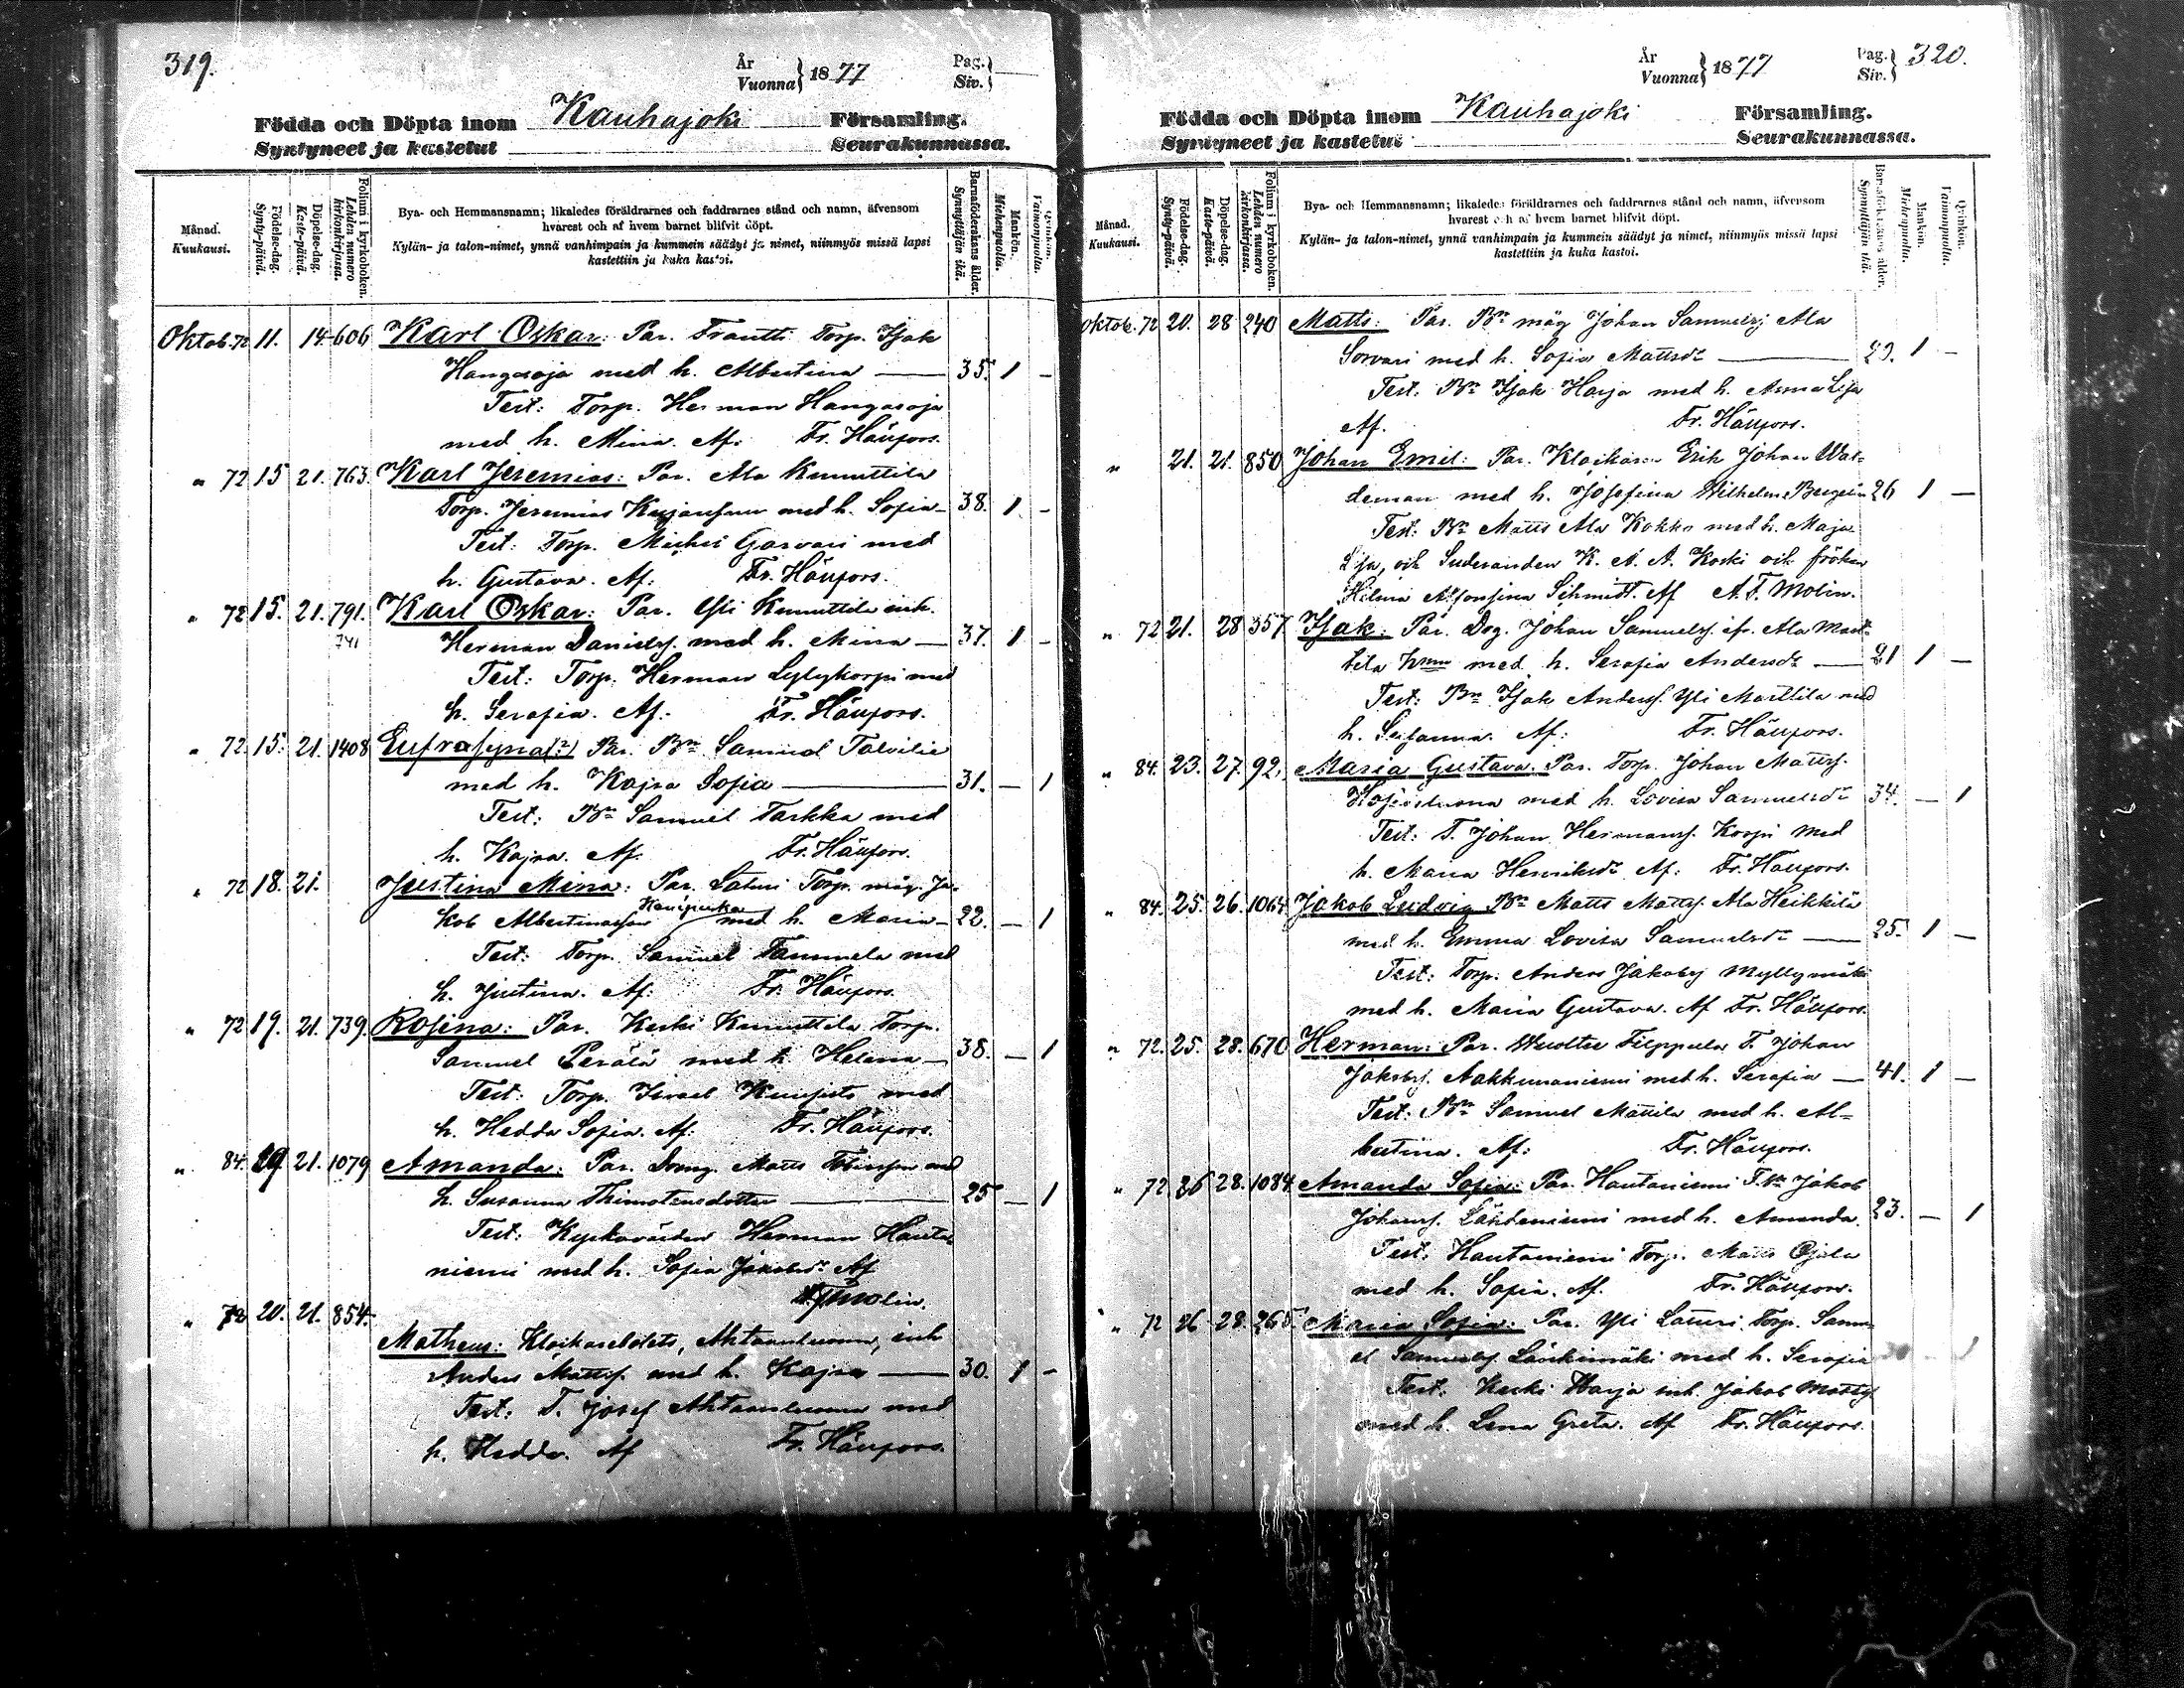 319.
År
Vuonna } 1877
Pag.
Siv. }
Födda och Döpta inom Kauhajoki Församling.
Syntyneet ja kastetut Seurakunnassa.
Månad.
Kuukausi.
Födelse-dag.
Synty-päivä.
Döpelse-dag.
Kaste-päivä.
Folium i kyrkoboken.
Lehden numero kirkonkirjassa.
Bya- och Hemmansnamn; likaledes föräldrarnes och faddrarnes stånd och namn, äfvensom
hvarest och af hvem barnet blifvit döpt.
Kylän- ja talon-nimet, ynnä vanhimpain ja kummein säädyt ja nimet, niinmyös missä lapsi
kastettiin ja kuka kastoi.
Barnaföderskans ålder.
Synnyttäjän ikä.
Mankön.
Miehenpuolia.
Qvinkön.
Vaimonpuolia.
Oktob. 72 11. 14. 606 Karl Oskar: Par. Frantti Torp. Isak
Hangasoja med h. Albertina — 35. 1 -
Test: Torp. Herman Hangasoja
med h. Mina. Af: Fr. Häufors.
" 72 15 21. 763. Karl Jeremias: Par. Ala Knuuttila
Torp. Jeremias med h. Sofia - 38. 1 -
Test: Torp. Michel med
h. Gustava. Af: Fr. Häufors.
" 72 15. 21. 791. Karl Oskar: Par. Yli Knuuttila inh.
741 Herman Daniels. med h. Mina — 37. 1 -
Test: Torp. Herman Lylykorpi med
h. Serafia. Af: Fr. Häufors.
" 72. 15. 21. 1408 Eufrasyna(?) Par. Bn Samuel Talvitie
med h. Kajsa Sofia — 31. — 1
Test: Bn Samuel Tarkka med
h. Kajsa. Af. Fr. Häufors.
" 72 18. 21. Justina Mina: Par. Lateri Torp. måg. Ja-
kob Albertinasson med h. Maria - 22. — 1
Test: Torp. Samuel Tammela med
h. Justina. Af: Fr. Häufors.
" 72 19. 21. 739. Rosina: Par. Keski Knuuttila Torp.
Samuel Perälä med h. Helena — 38. — 1
Test: Torp. Israel med
h. Hedda Sofia. Af: Fr. Häufors.
" 84. 19 21. 1079 Amanda: Par. Dreng. Matts med
h. Susanna Thimoteusdotter — 25 — 1
Test: Kyrkovärden Herman Hauta-
niemi med h. Sofia Jakobsdr Af
A. F. Molin.
" 72 20. 21. 854.
Matheus: Klockarebolets, Ahtaanluoma, inh
Anders Mattss. med h. Kajsa — 30. 1 -
Test: T. Josef Ahtaanluoma med
h. Hedda. Af Fr. Häufors.
År
Vuonna } 1877
Pag.
Siv. } 320.
Födda och Döpta inom Kauhajoki Församling.
Syntyneet ja kastetut Seurakunnassa.
Månad.
Kuukausi.
Födelse-dag.
Synty-päivä.
Döpelse-dag.
Kaste-päivä.
Folium i kyrkoboken.
Lehden numero kirkonkirjassa.
Bya- och Hemmansnamn; likaledes föräldrarnes och faddrarnes stånd och namn, äfvensom
hvarest och af hvem barnet blifvit döpt.
Kylän- ja talon-nimet, ynnä vanhimpain ja kummein säädyt ja nimet, niinmyös missä lapsi
kastettiin ja kuka kastoi.
Barnaföderskans ålder.
Synnyttäjän ikä.
Mankön.
Miehenpuolia.
Qvinkön.
Vaimonpuolia.
Oktob. 72 20. 28 240 Matts: Par. Bn måg Johan Samuelsj Ala
Sorvari med h. Sofia Mattsdr — 1 -
Test: Bn Isak Harja med h. Anna Lisa
Af. Fr. Häufors.
" 21. 21. 850 Johan Emil: Par. Klockaren Erik Johan Wal-
deman med h. Josefina Wilhelm. 26 1 —
Test: Bn Matts Ala Kokko med h. Maja
Lisa, och Studeranden K. A. A. Koski och fröken
Hilma Alfonsina Schmidt. Af A. F. Molin.
" 72 21. 28 357 Isak: Par. Drg. Johan Samuels. ifr. Ala Mart-
tila hmn med h. Serafia Andersdr — 21 1 —
Test: Bn Isak Anderss. Yli Marttila med
h. Susanna. Af: Fr. Häufors.
" 84. 23. 27. 92. Maria Gustava. Par. Torp. Johan Mattss.
med h. Lovisa Samuelsdr 34. — 1
Test: T. Johan Hermanss. Korpi med
h. Maria Henriksdr Af: Fr. Häufors.
" 84. 25. 26. 1064 Jakob Ludvig Bn Matts Mattss. Ala Heikkilä
med h. Emma Lovisa Samuelsdr — 25. 1 —
Test: Torp. Anders Jakobsj Myllymäki
med h. Maria Gustava. Af Fr. Häufors.
" 72. 25. 28. 670 Herman: Par. Filppula T. Johan
Jakobss. Aakkunaniemi med h. Serafia — 41. 1 —
Test: Bn Samuel Mattila med h. Al-
bertina. Af: Fr. Häufors.
" 72 26 28. 1084 Amanda Sofia: Par. Hautaniemi Jakob
Johanss. Lähdeniemi med h. Amanda 23. — 1
Test: Hautaniemi Torp. Matts Ojala
med h. Sofia. Af. Fr. Häufors.
" 72 26 28. 265. Maria Sofia: Par. Yli Lateri. Torp. Samu-
el Samuelss. med h. Serafia 30 — 1
Test: Keski Harja inh. Jakob Mattss
med h. Lena Greta. Af Fr. Häufors.